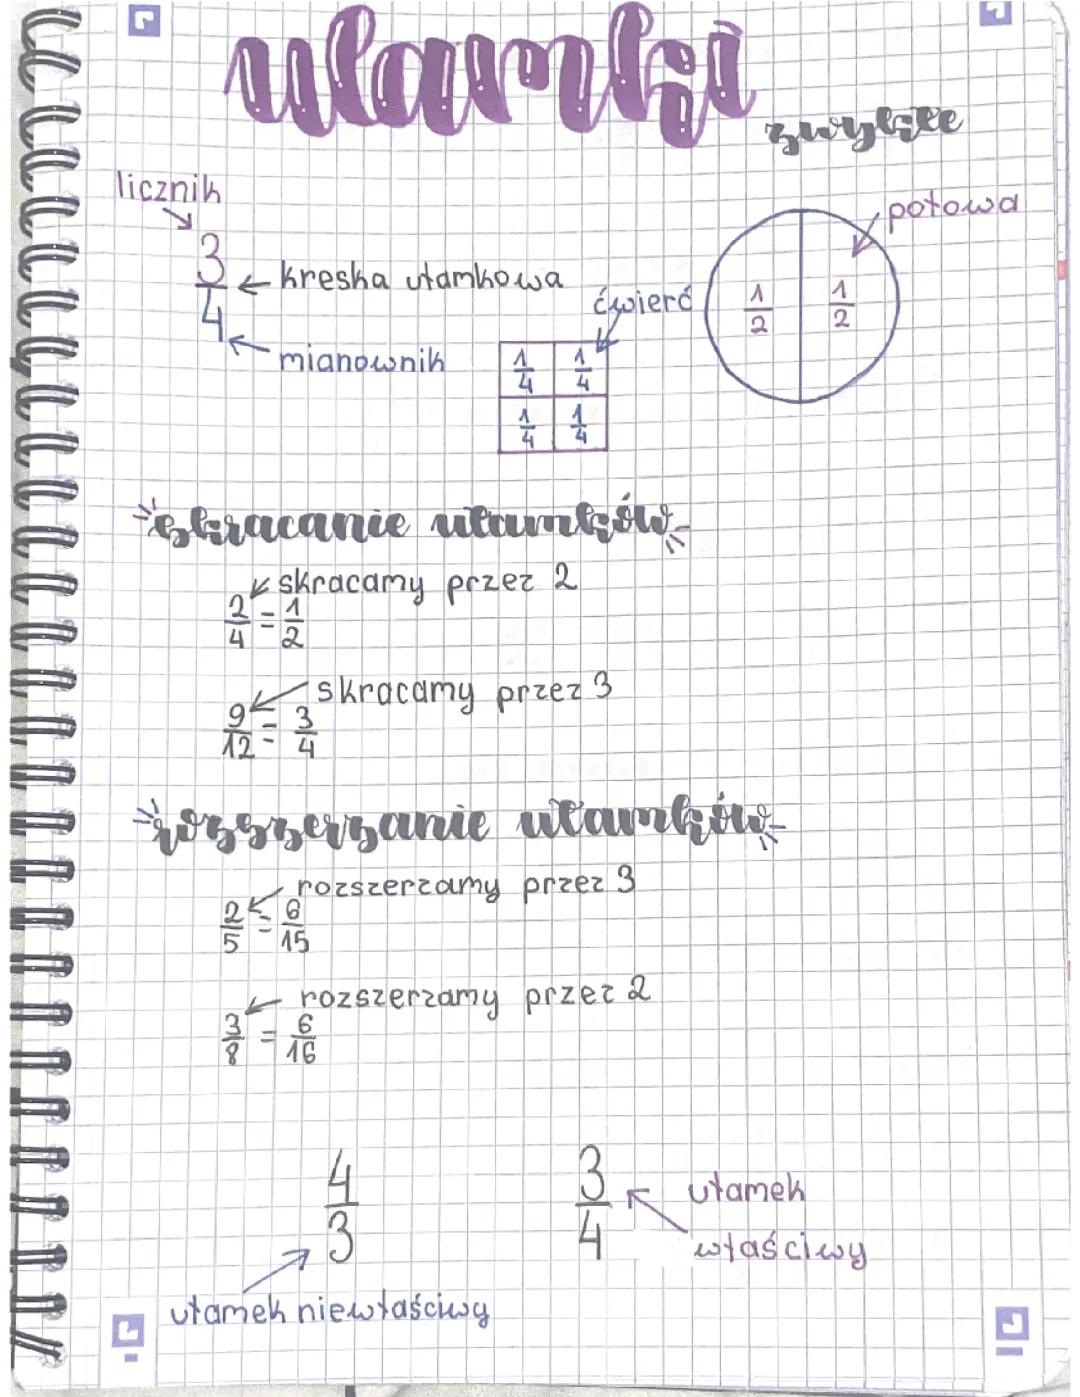 ułamki
zwykłe
licznik
3/4
kreska ułamkowa
mianownik
ćwierć
1/4 1/4
1/4 1/4
połowa
1/2 1/2
skracanie ułamków
skracamy przez 2
2/4 = 1/2
skracamy przez 3
9/12 = 3/4
rozszerzanie ułamków
rozszerzamy przez 3
2/5 = 6/15
rozszerzamy przez 2
3/8 = 6/16
4/3
ułamek niewłaściwy
3/4
ułamek
właściwy